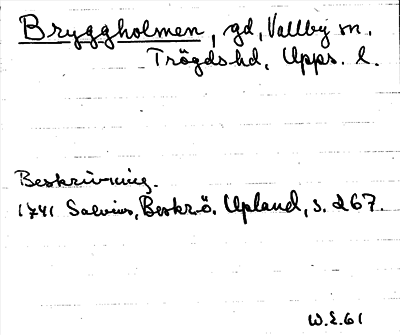 Bryggholmen, gd, Vallby sn.
Trögds hd, Upps. l.
Beskrivning.
1741 Salvius, Beskr. ö. Upland, s. 267.
W.E.61